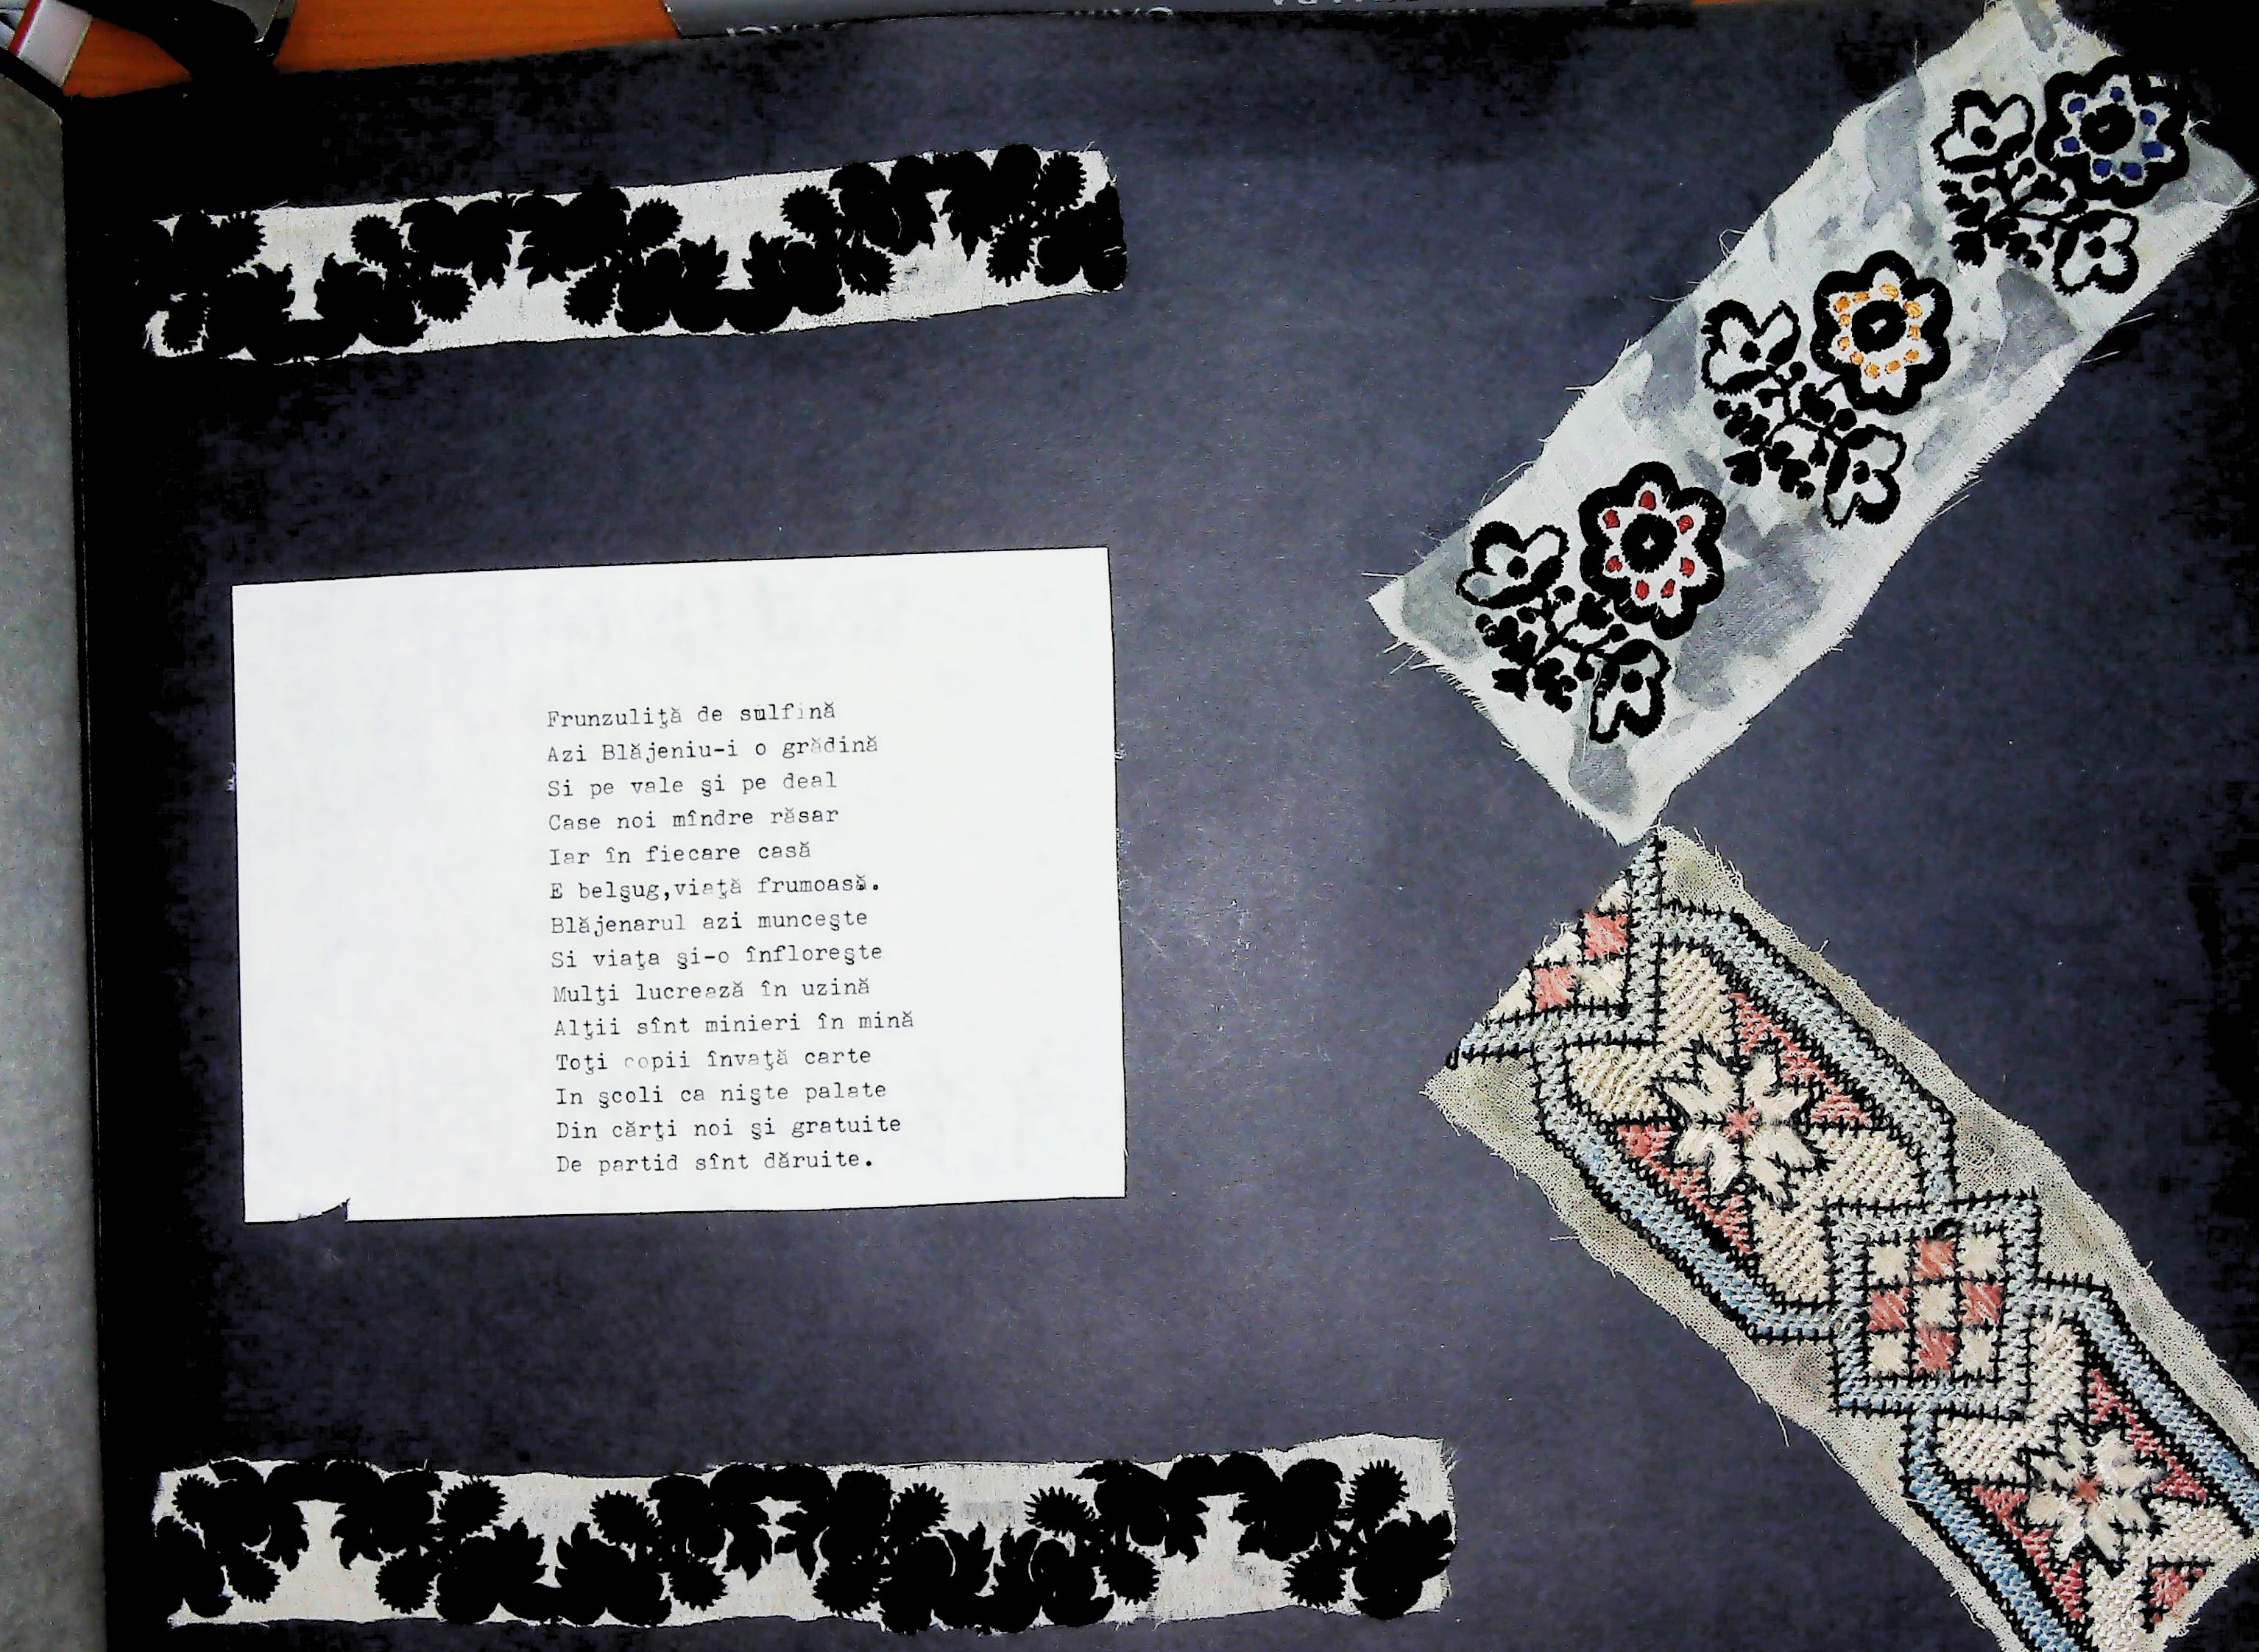 Frunzuliţă de sulfină
Azi Blăjeniu-i o grădină
Si pe vale şi pe deal
Case noi mîndre răsar
Iar în fiecare casă
E belşug,viaţă frumoasă.
Blăjenarul azi munceşte
Si viaţa şi-o înfloreşte
Mulţi lucrează în uzină
Alţii sînt minieri în mină
Toţi copii învaţă carte
In şcoli ca nişte palate
Din cărţi noi şi gratuite
De partid sînt dăruite.